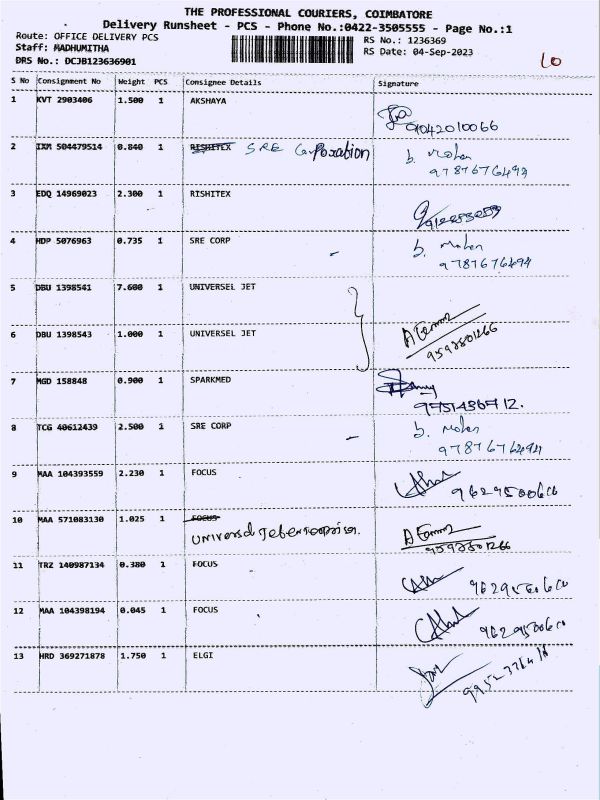 THE PROFESSIONAL COURIERS, COIMBATORE
Delivery Runsheet - PCS - Phone No.:0422-3505555 - Page No.:1
Route: OFFICE DELIVERY PCS
Staff: MADHUMITHA
DRS No.: DCJB123636901
RS No.: 1236369
RS Date: 04-Sep-2023
10
S No Consignment No Weight PCS Consignee Details Signature
1 KVT 2903406 1.500 1 AKSHAYA
9042010066
2 IXM 504479514 0.840 1 RISHITEX SRE Corporation b. Mohan
9787676494
3 EDQ 14969023 2.300 1 RISHITEX
4 HDP 5076963 0.735 1 SRE CORP b. Mohan
9787676494
5 DBU 1398541 7.600 1 UNIVERSEL JET
6 DBU 1398543 1.000 1 UNIVERSEL JET
9592801266
7 MGD 158848 0.900 1 SPARKMED
9751436712.
8 TCG 40612439 2.500 1 SRE CORP b. Mohan
9787676494
9 MAA 104393559 2.230 1 FOCUS
10 MAA 571083130 1.025 1 FOCUS
11 TRZ 140987134 0.380 1 FOCUS
12 MAA 104398194 0.045 1 FOCUS
13 HRD 369271878 1.750 1 ELGI